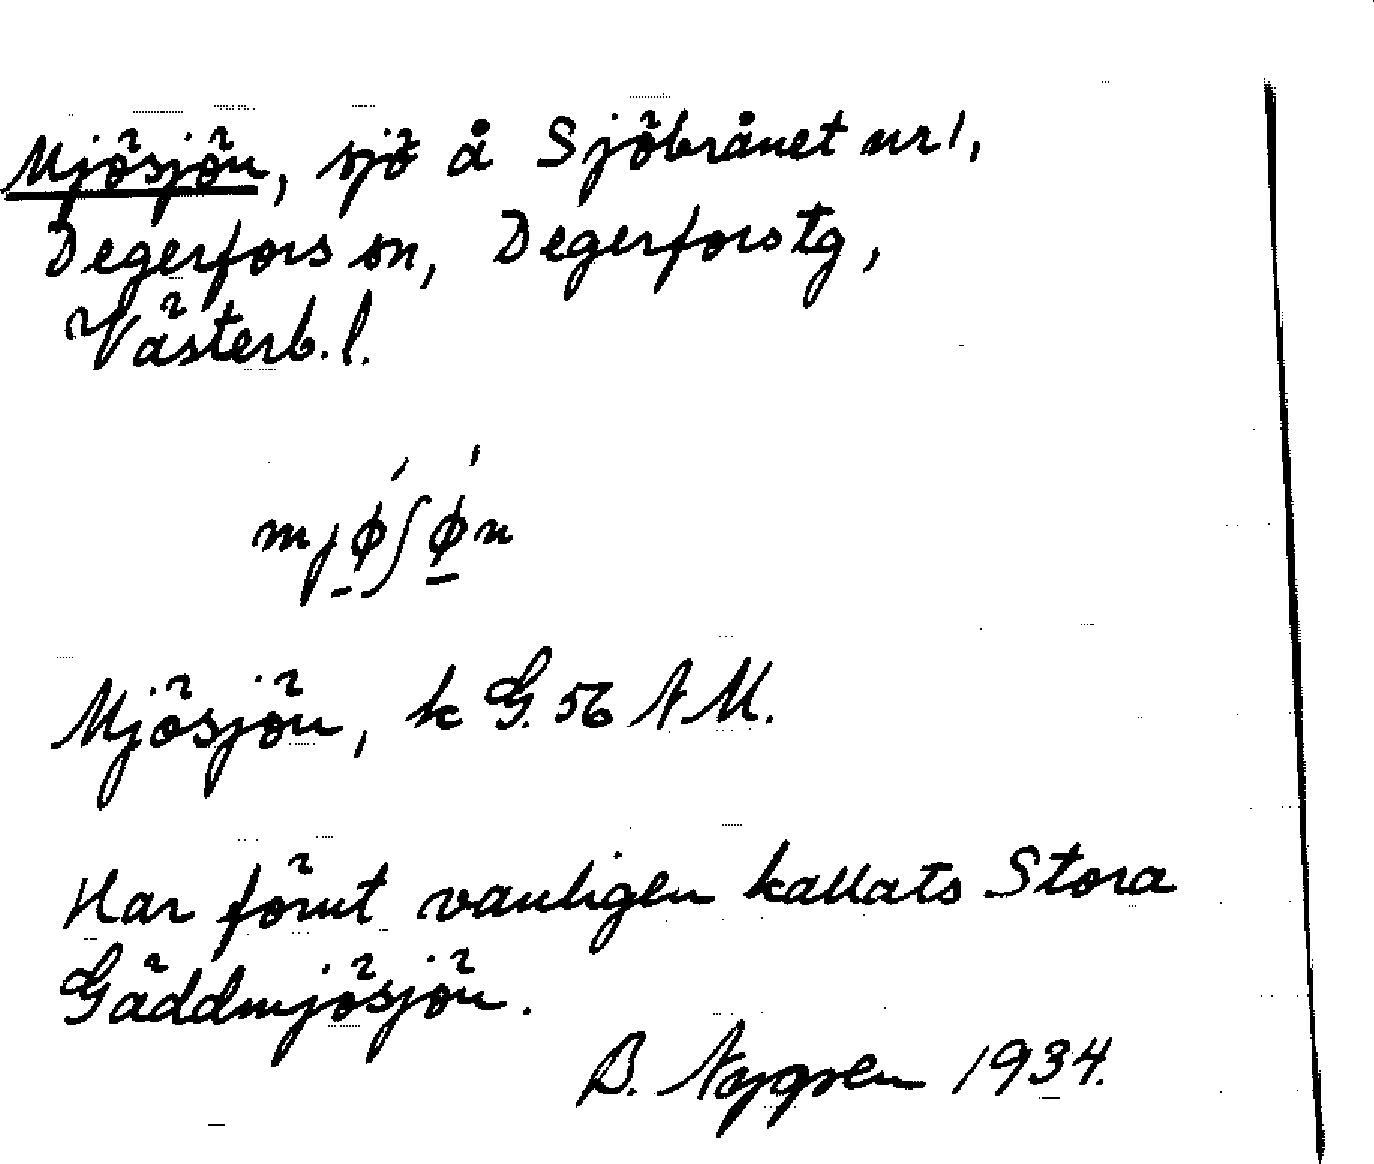 Mjösjön, sjö å Sjöbrånet nr 1,
Degerfors sn, Degerfors tg,
Västerb. l.
mjø´ʃø´n
Mjösjön, k G. 56 N M.
Har förut vanligen kallats Stora
Gäddmjösjön.
B. Nygren 1934.